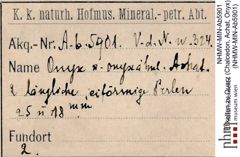 K. k. naturh. Hofmus. Mineral.-petr. Abt.
Akq.-Nr. A.b. 5901. V. d. N. w. 374.
Name Onyx u. onyxähnl. Achat.
2 längliche, eiförmige Perlen
25 u 18 mm
Fundort
2
NHMW-MIN-Ab5901
(Chalcedon, Achat, Onyx)
NHMW-MIN-Ab5901
nhm
museum wien